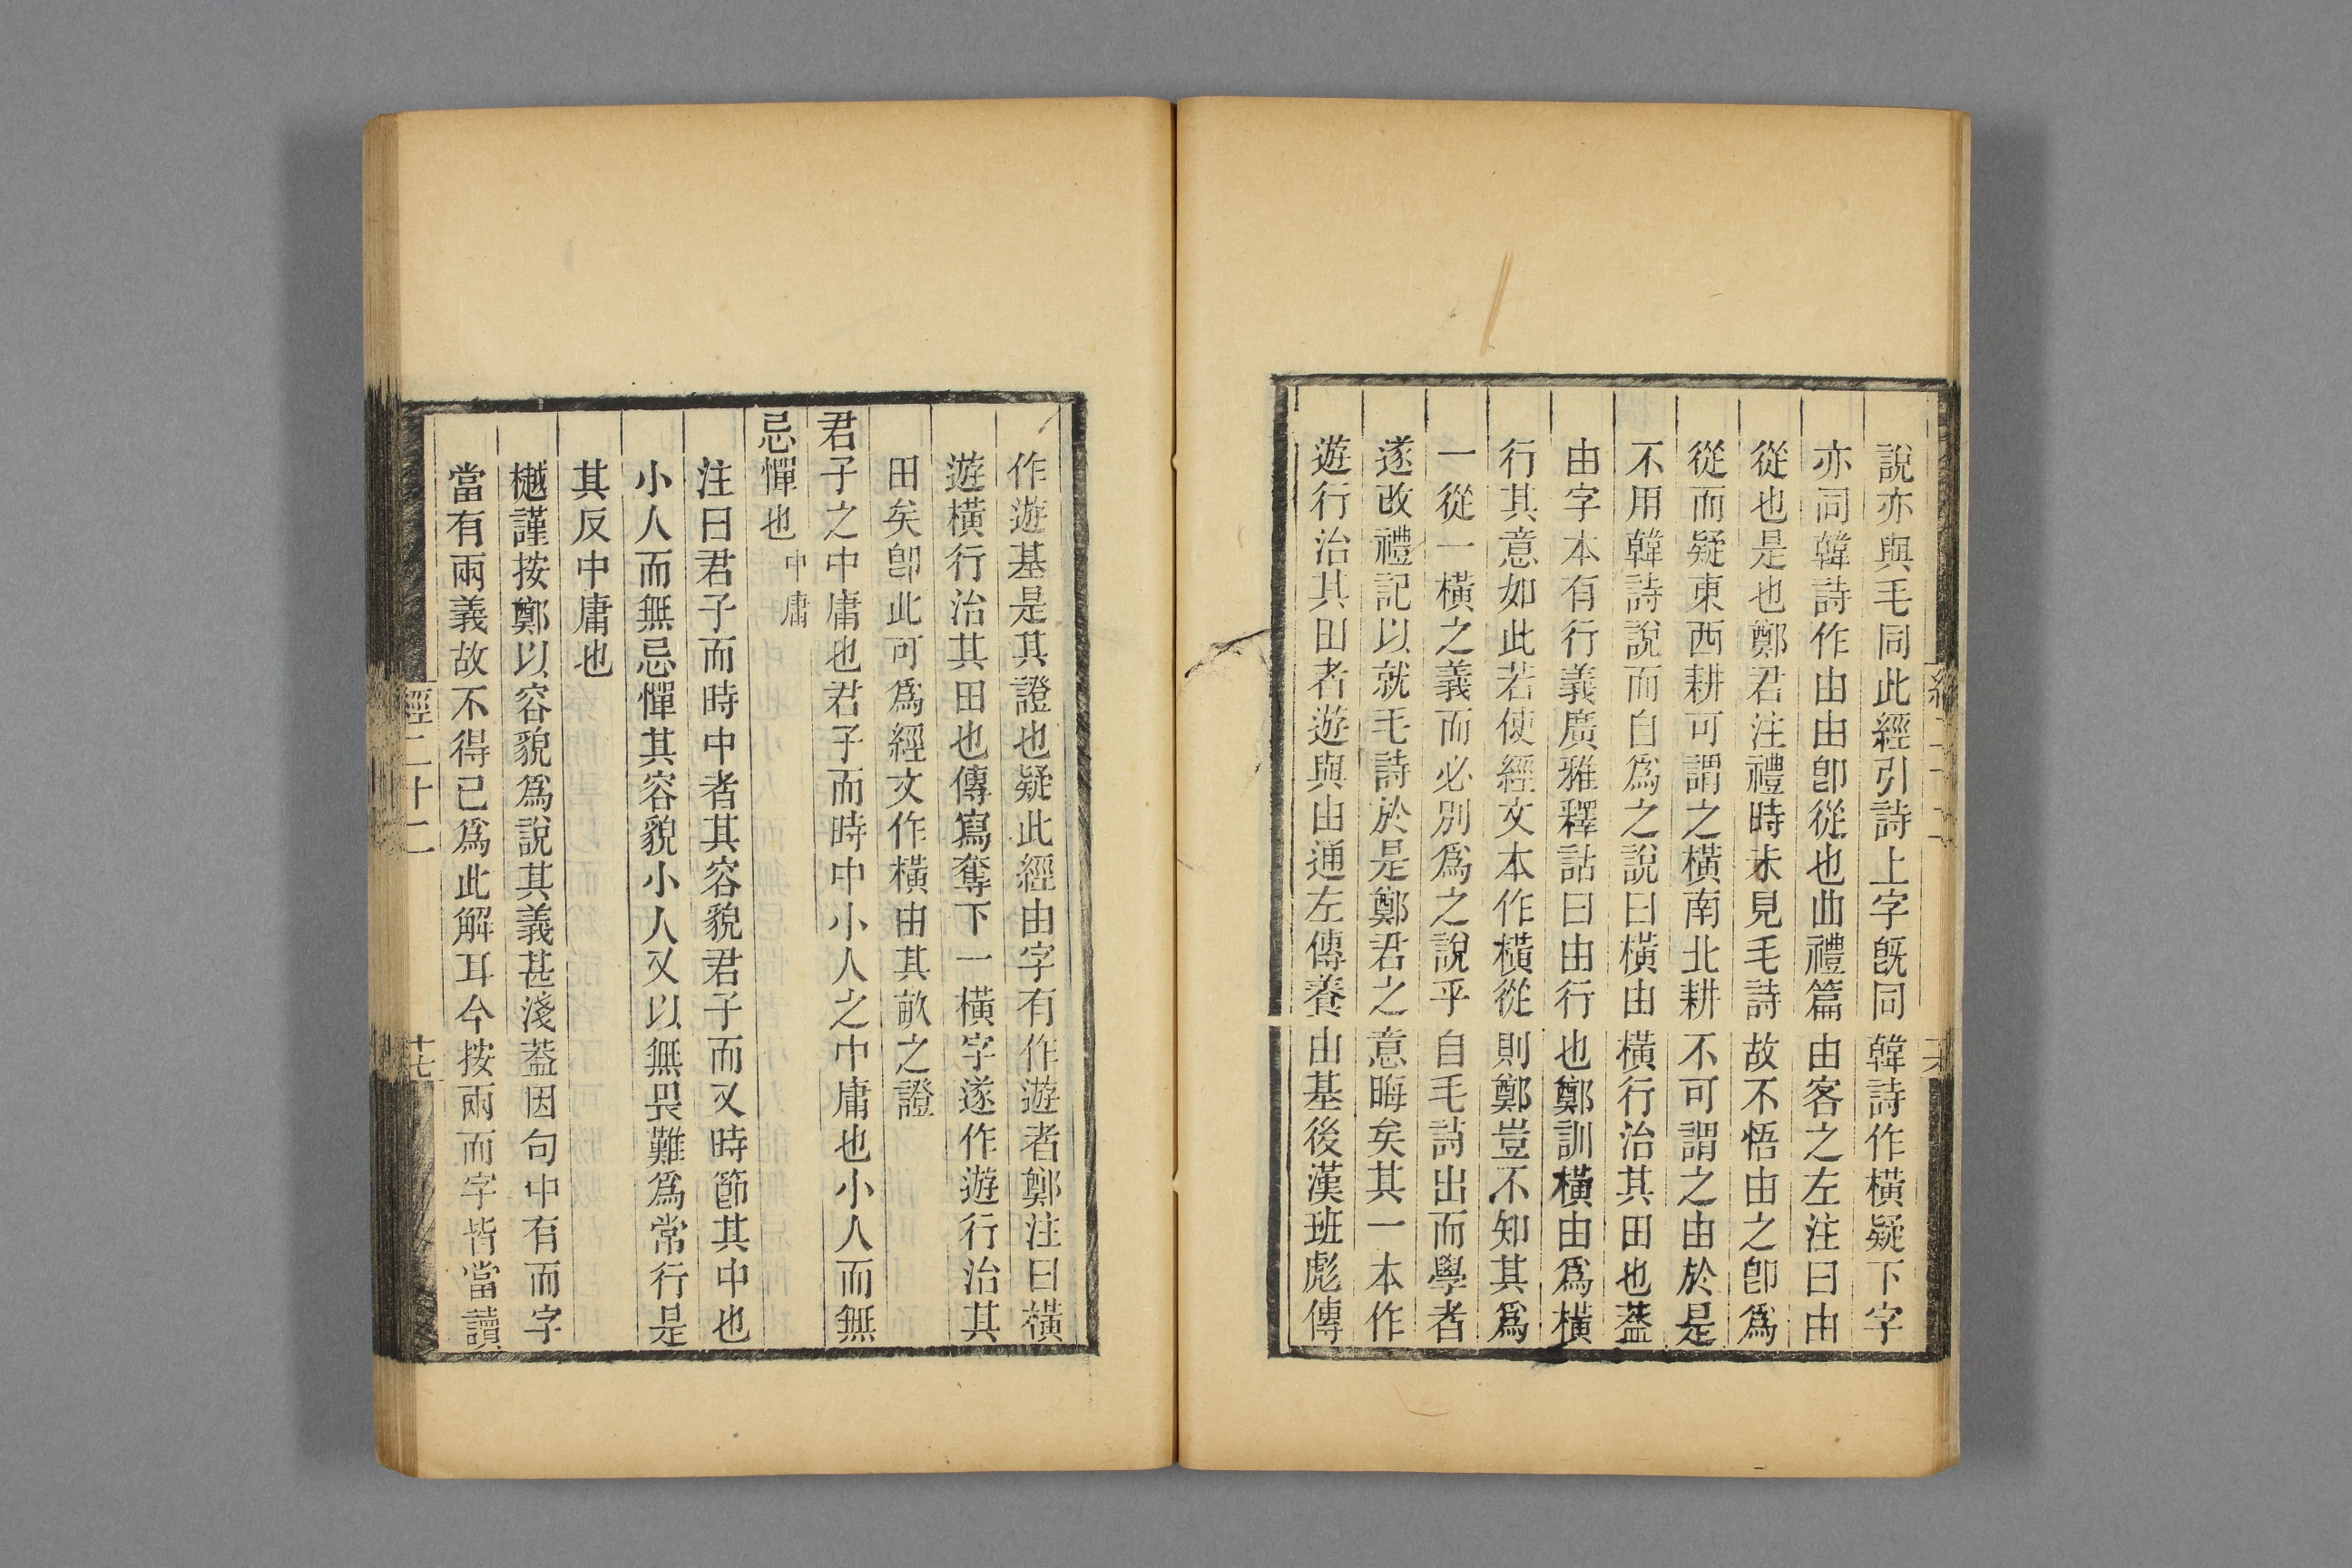 說亦與毛同此經引詩上字旣同韓詩作橫疑下字
亦同韓詩作由由卽從也曲禮篇由客之左注曰由
從也是也鄭君注禮時未見毛詩故不悟由之卽爲
從而疑東西耕可謂之橫南北耕不可謂之由於是
不用韓詩說而自爲之說曰橫由橫行治其田也葢
由字本有行義廣雅釋詁曰由行也鄭訓橫由爲橫
行其意如此若使經文本作橫從則鄭豈不知其爲
一從一橫之義而必別爲之說乎自毛詩出而學者
遂改禮記以就毛詩於是鄭君之意晦矣其一本作
遊行治其田者遊與由通左傳養由基後漢班彪傳
作遊基是其證也疑此經由字有作遊者鄭注曰橫
遊橫行治其田也傳寫奪下一橫字遂作遊行治其
田矣卽此可爲經文作橫由其畝之證
君子之中庸也君子而時中小人之中庸也小人而無
忌憚也中庸
注曰君子而時中者其容貌君子而又時節其中也
小人而無忌憚其容貌小人又以無畏難爲常行是
其反中庸也
樾謹按鄭以容貌爲說其義甚淺葢因句中有而字
當有兩義故不得已爲此解耳今按兩而字皆當讀
經二十二
十七